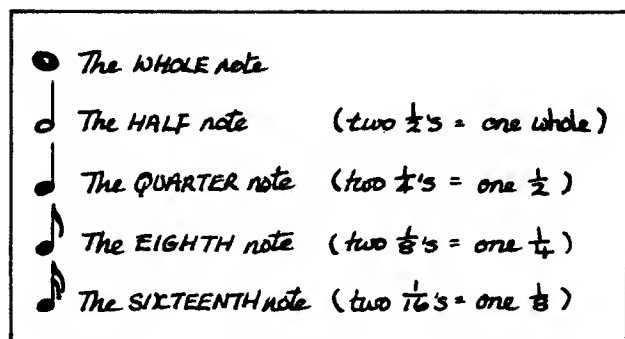 The WHOLE note
The HALF note (two ½'s = one whole)
The QUARTER note (two ¼'s = one ½)
The EIGHTH note (two ⅛'s = one ¼)
The SIXTEENTH note (two 1/16's = one ⅛)